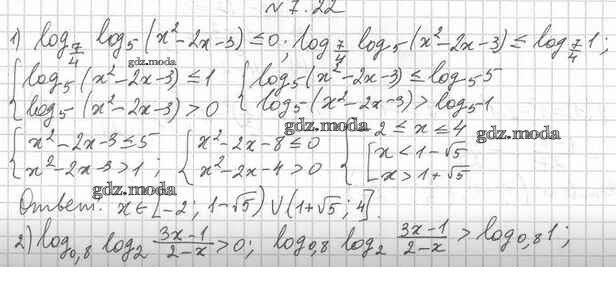 N 7. 22
1) log_{7/4} log_5 (x² - 2x - 3) ≤ 0; log_{7/4} log_5 (x² - 2x - 3) ≤ log_{7/4} 1;
gdz.moda
{ log_5 (x² - 2x - 3) ≤ 1 { log_5 (x² - 2x - 3) ≤ log_5 5
{ log_5 (x² - 2x - 3) > 0 { log_5 (x² - 2x - 3) > log_5 1
gdz.moda gdz.moda
{ x² - 2x - 3 ≤ 5 { x² - 2x - 8 ≤ 0 { 2 ≤ x ≤ 4
{ x² - 2x - 3 > 1 ; { x² - 2x - 4 > 0 { [ x < 1 - √5
[ x > 1 + √5
gdz.moda gdz.moda
Ответ: x ∈ [-2; 1 - √5) ∪ (1 + √5; 4].
2) log_{0,8} log_2 (3x - 1)/(2 - x) > 0; log_{0,8} log_2 (3x - 1)/(2 - x) > log_{0,8} 1;